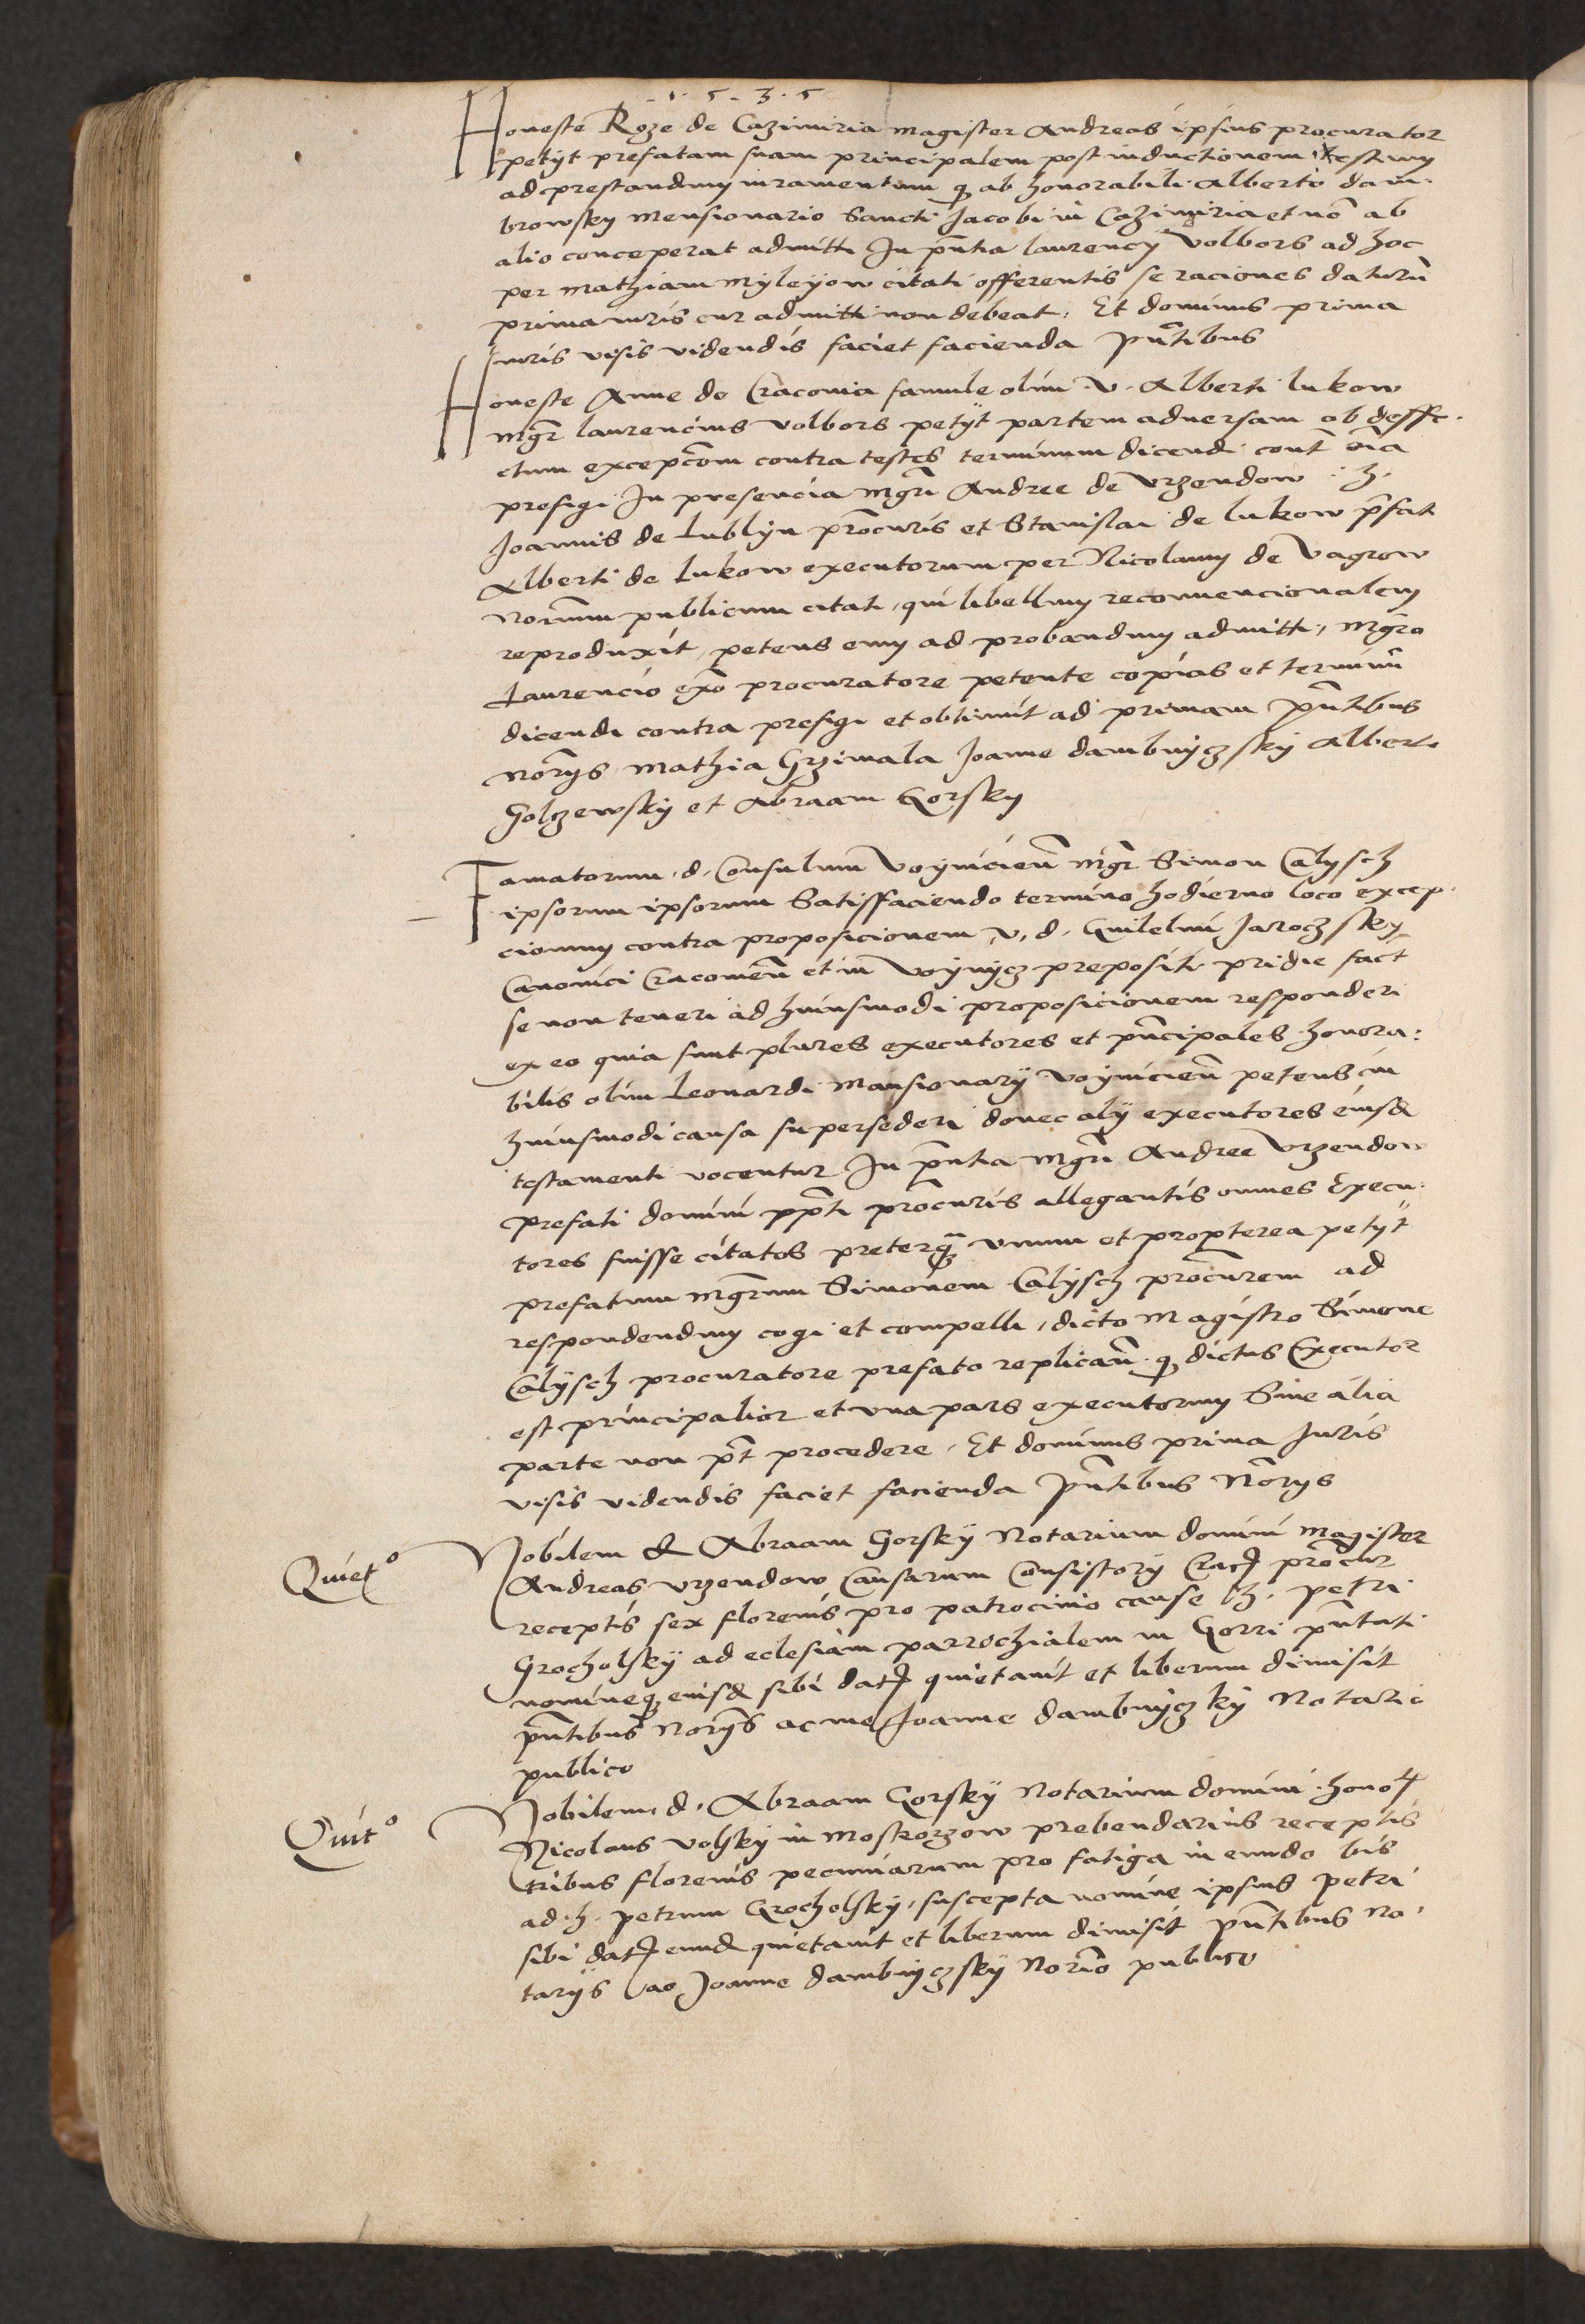 1535
Honeste Roze de Cazimiria magister Andreas ipsius procurator
petyt prefatam suam principalem post inductionem testium
ad prestandum iuramentum q ab honorabili Alberto dam-
browsky Mensionario Sancti Jacobi in Cazimiria et nō ab
alio conceperat admitti In pn̄tia laurency Volbors ad hoc
per Mathiam Myleyow citati offerentis se raciones daturū
prima iuris cur admitti non debeat. Et dominus prima
iuris visis videndis faciet facienda pn̄tibus
Honeste Anne de Cracovia famule olim v. Alberti lukow
mgr̄ laurencius volbors petyt partem adversam ob deffe-
ctum excepcom̄ contra testes terminum dicendi cont oīa
prefigi In presencia mgr̄i Andree de Vrzendow h.
Joannis de Lublyn procuris et Stanislai de lukow p̄fat
Alberti de Lukow executorum per Nicolaum de Vagrow
Noriūm publicum citati, qui libellum reconvencionalem
reproduxit, petens eum ad probandum admitti, mgr̄o
Laurencio ex̄o procuratore petente copias et terminū
dicendi contra prefigi et obtinuit ad primam pn̄tibus
Nor̄ys Mathia Grzimala Joanne dambnyczsky Alberto
Golczewsky et Abraam Gorsky
Famatorum. d. Consulum Voynicien̄ Mgr̄ Simon Calysch
ipsorum ipsorum Satisfaciendo termino hodierno loco excep-
cionum contra proposicionem v. d. Guilelmi Jaroczsky
Canonici Cracovien̄ et in Voynycz prepositi pridie fact
se non teneri ad huiusmodi proposicionem responderi
ex eo quia sunt plures executores et prn̄cipales honora-
bilis olim Leonardi Mansionary Voynicien̄ petens in
huiusmodi causa supersederi donec aly executores eiusd
testamenti vocentur In pn̄tia Mgr̄i Andree Vrzendow
prefati domini pp̄ti procuris allegantis omnes Execu-
tores fuisse citatos preterq̄ unum et propterea petyt
prefatum Mgr̄um Simonem Calysch procurem ad
respondendum cogi et compelli, dicto Magistro Simone
Calysch procuratore prefato replican̄. q dictus Executor
est principalior et una pars executorum Sine alia
parte non pt̄ procedere. Et dominus prima Juris
visis videndis faciet facienda pn̄tibus Nor̄ys
Quietº Nobilem d Abraam Gorsky Notarium domini Magister
Andreas Vrzendow Causarum Consistory Crac procur
receptis sex florenis pro patrocinio cause h. petri
Grocholsky ad eclesiam parrochialem in Gorri pn̄tati
nomineq eiusd sibi dat quietavit et liberum dimisit
pn̄tibus Nor̄ys ac me Joanne dambnyczky Notario
publico
Quitº Nobilem. d. Abraam Gorsky Notarium domini. hono
Nicolaus Volsky in Moskorzow prebendarius receptis
tribus florenis pecuniarum pro fatiga in eundo bis
ad h. petrum Grocholsky, suscepta nomine ipsius petri
sibi dat eund quietavit et liberum dimisit pn̄tibus No-
tarys ac Joanne dambnyczsky Norio publico